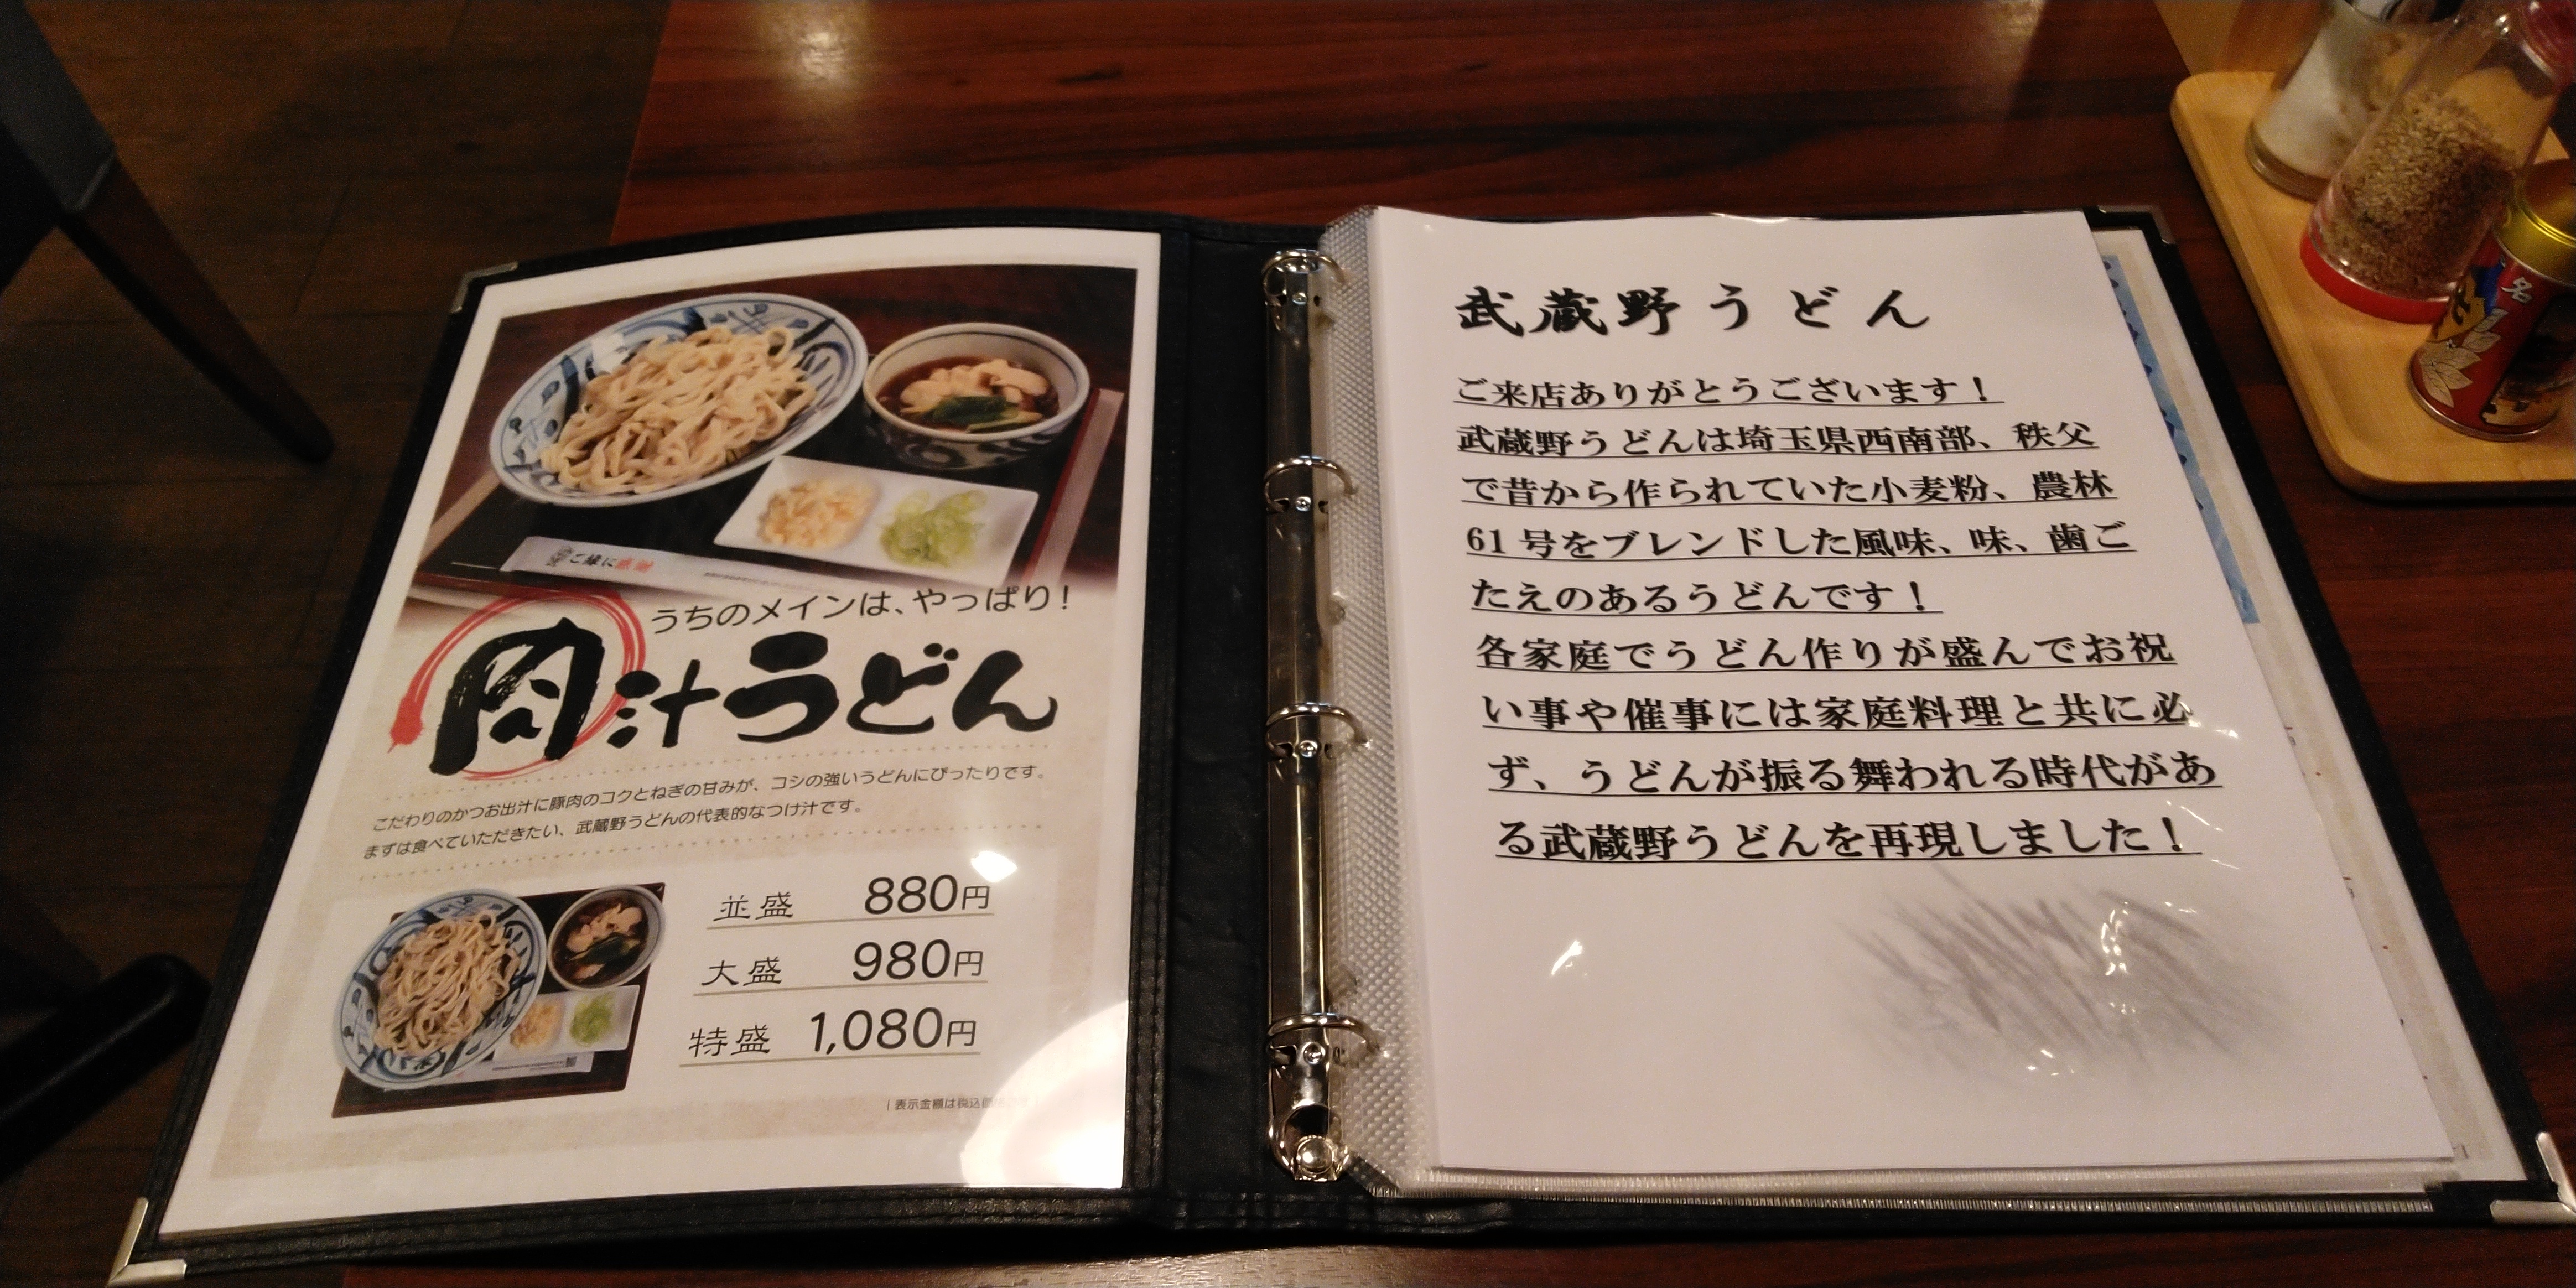 ご縁に感謝
うちのメインは、やっぱり!
肉汁うどん
こだわりのかつお出汁に豚肉のコクとねぎの甘みが、コシの強いうどんにぴったりです。
まずは食べていただきたい、武蔵野うどんの代表的なつけ汁です。
並盛 880円
大盛 980円
特盛 1,080円
表示金額は税込価格
武蔵野うどん
ご来店ありがとうございます!
武蔵野うどんは埼玉県西南部、秩父
で昔から作られていた小麦粉、農林
61号をブレンドした風味、味、歯ご
たえのあるうどんです!
各家庭でうどん作りが盛んでお祝
い事や催事には家庭料理と共に必
ず、うどんが振る舞われる時代があ
る武蔵野うどんを再現しました!
名